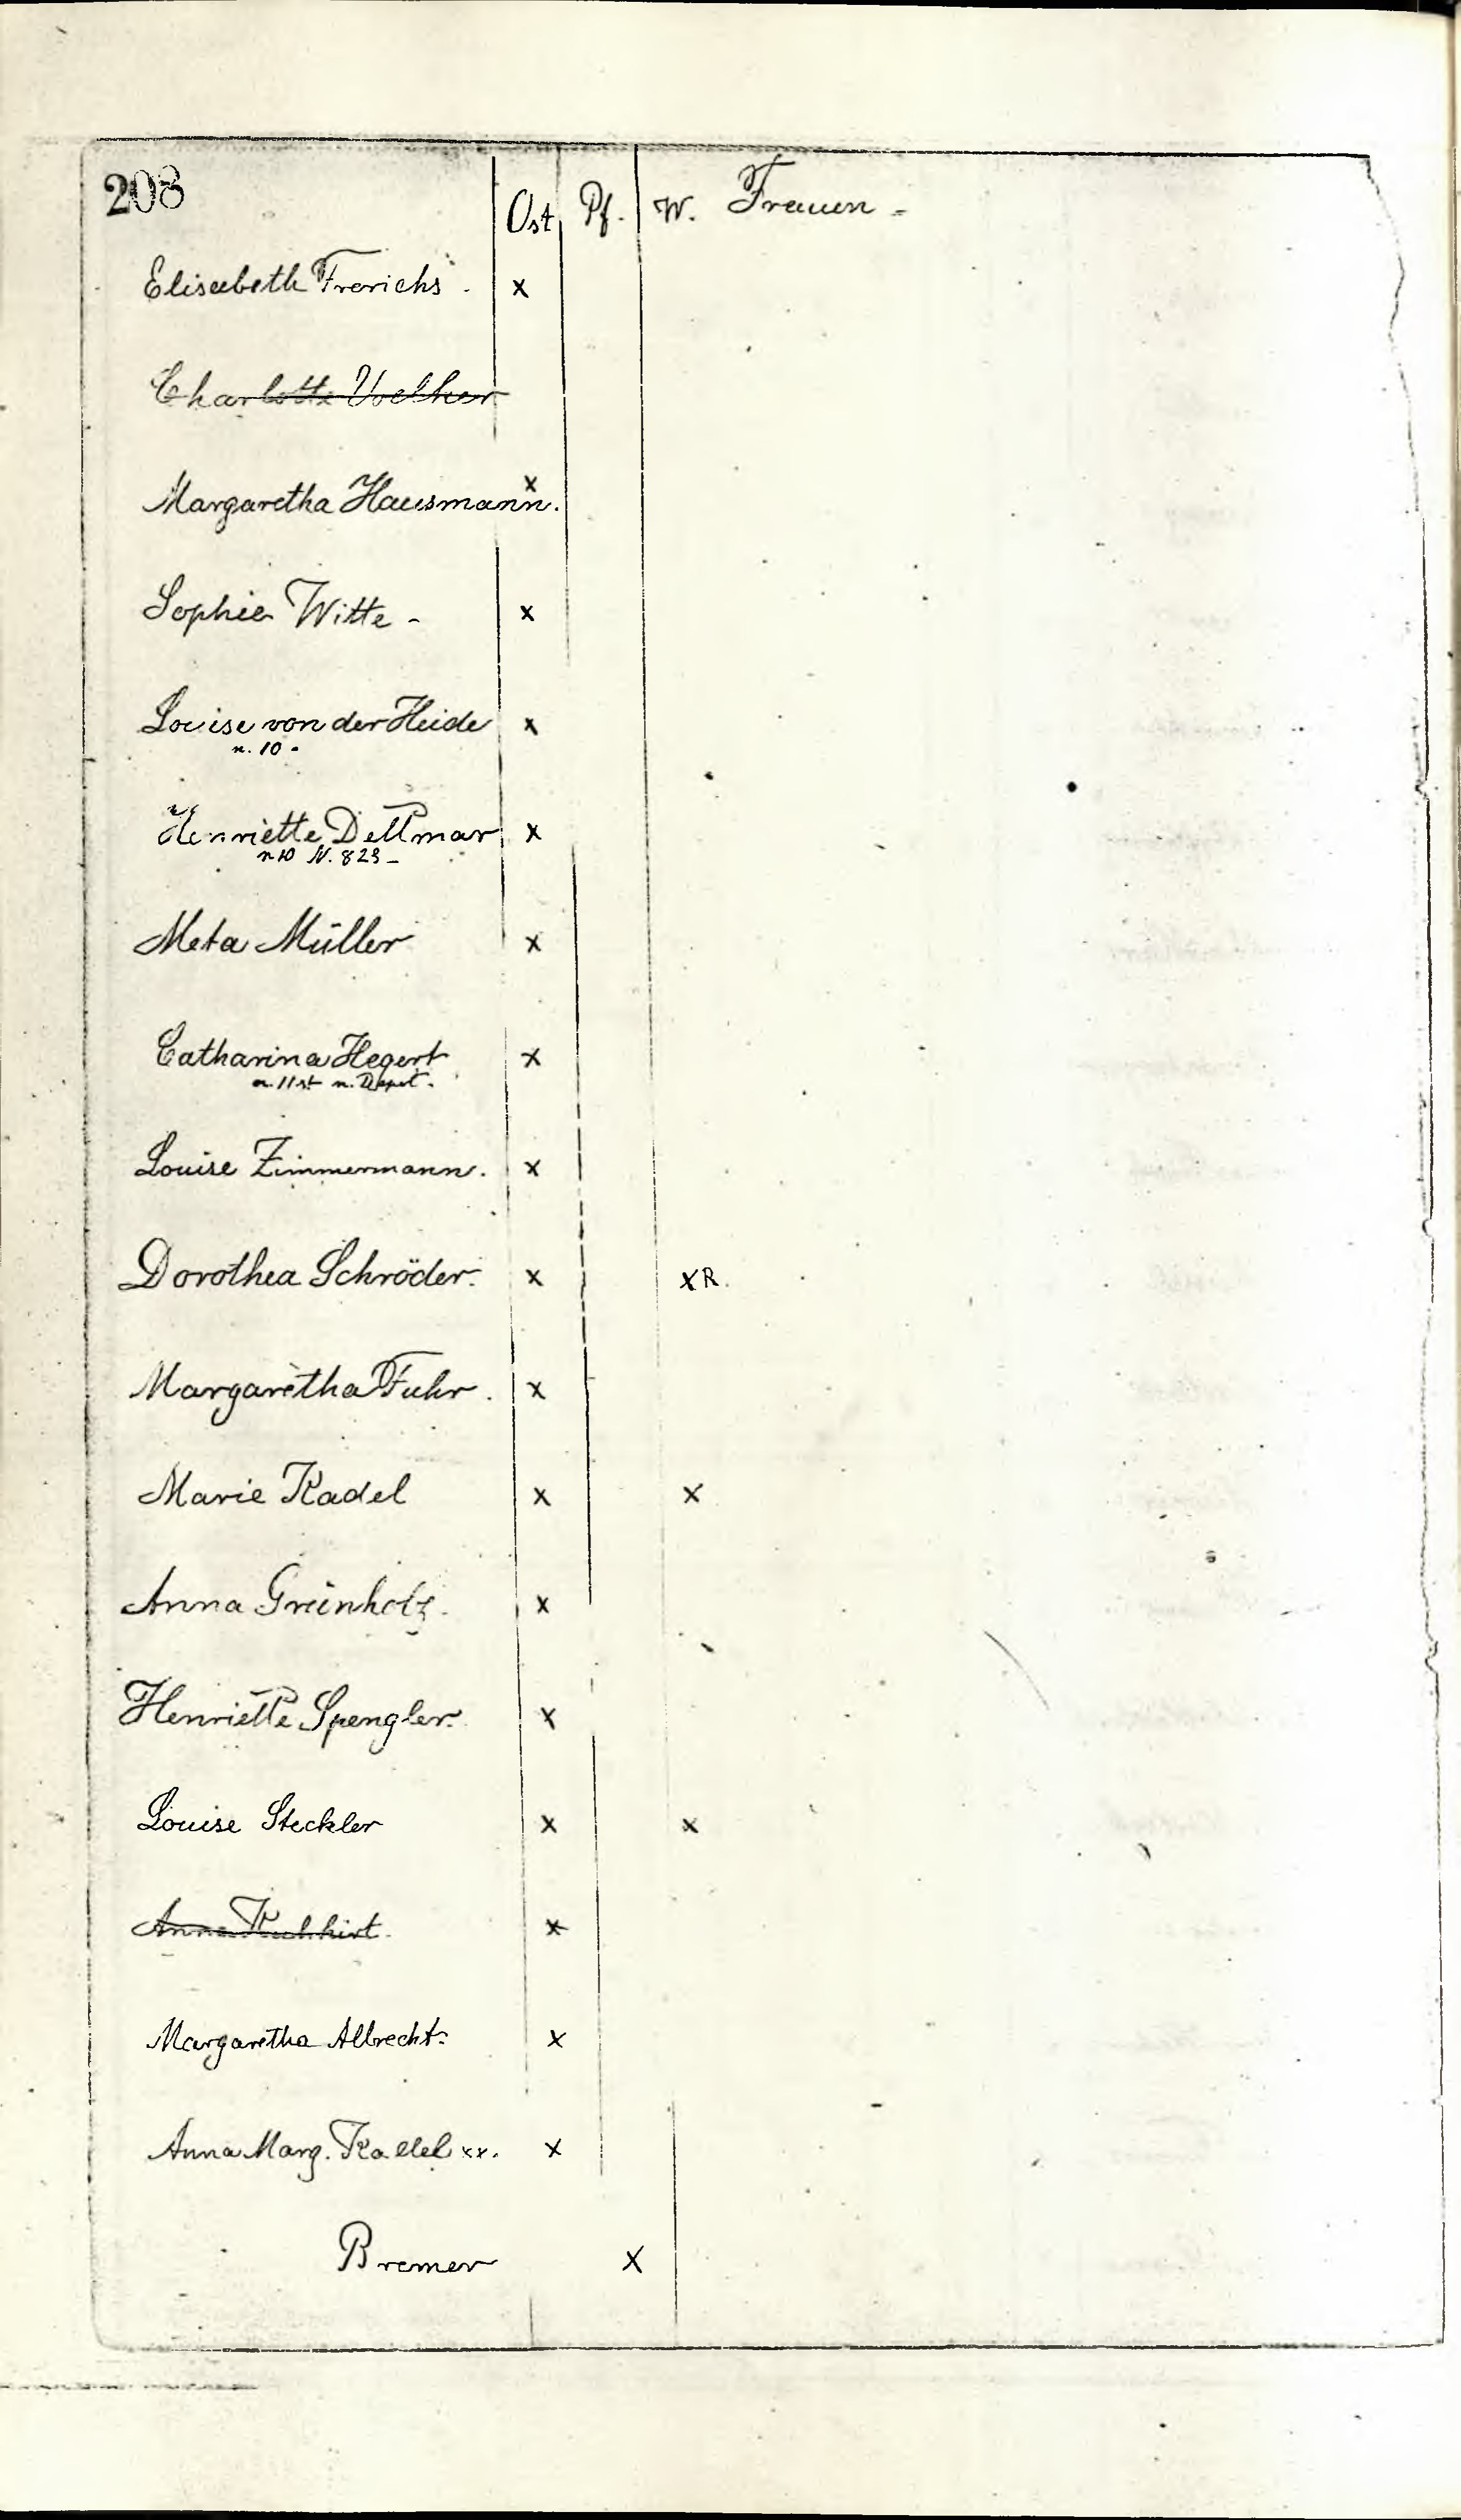 208
Ost. Pf. W. Frauen -
Elisabeth Frerichs - x
Charlotte Voelker
Margaretha Hausmann. x
Sophie Witte - x
Louise von der Heide x
n. 10 -
Henriette Dettmar x
n 10 N. 823 -
Meta Müller x
Catharina Hegert x
n. 11 st n. Depot.
Louise Zimmermann. x
Dorothea Schröder. x xR.
Margaretha Fuhr. x
Marie Kadel x x
Anna Grünholz. x
Henriette Spengler. x
Louise Steckler x x
Anna Kuhhirt. x
Margaretha Albrecht. x
Anna Marg. Kadel xx. x
Bremer x